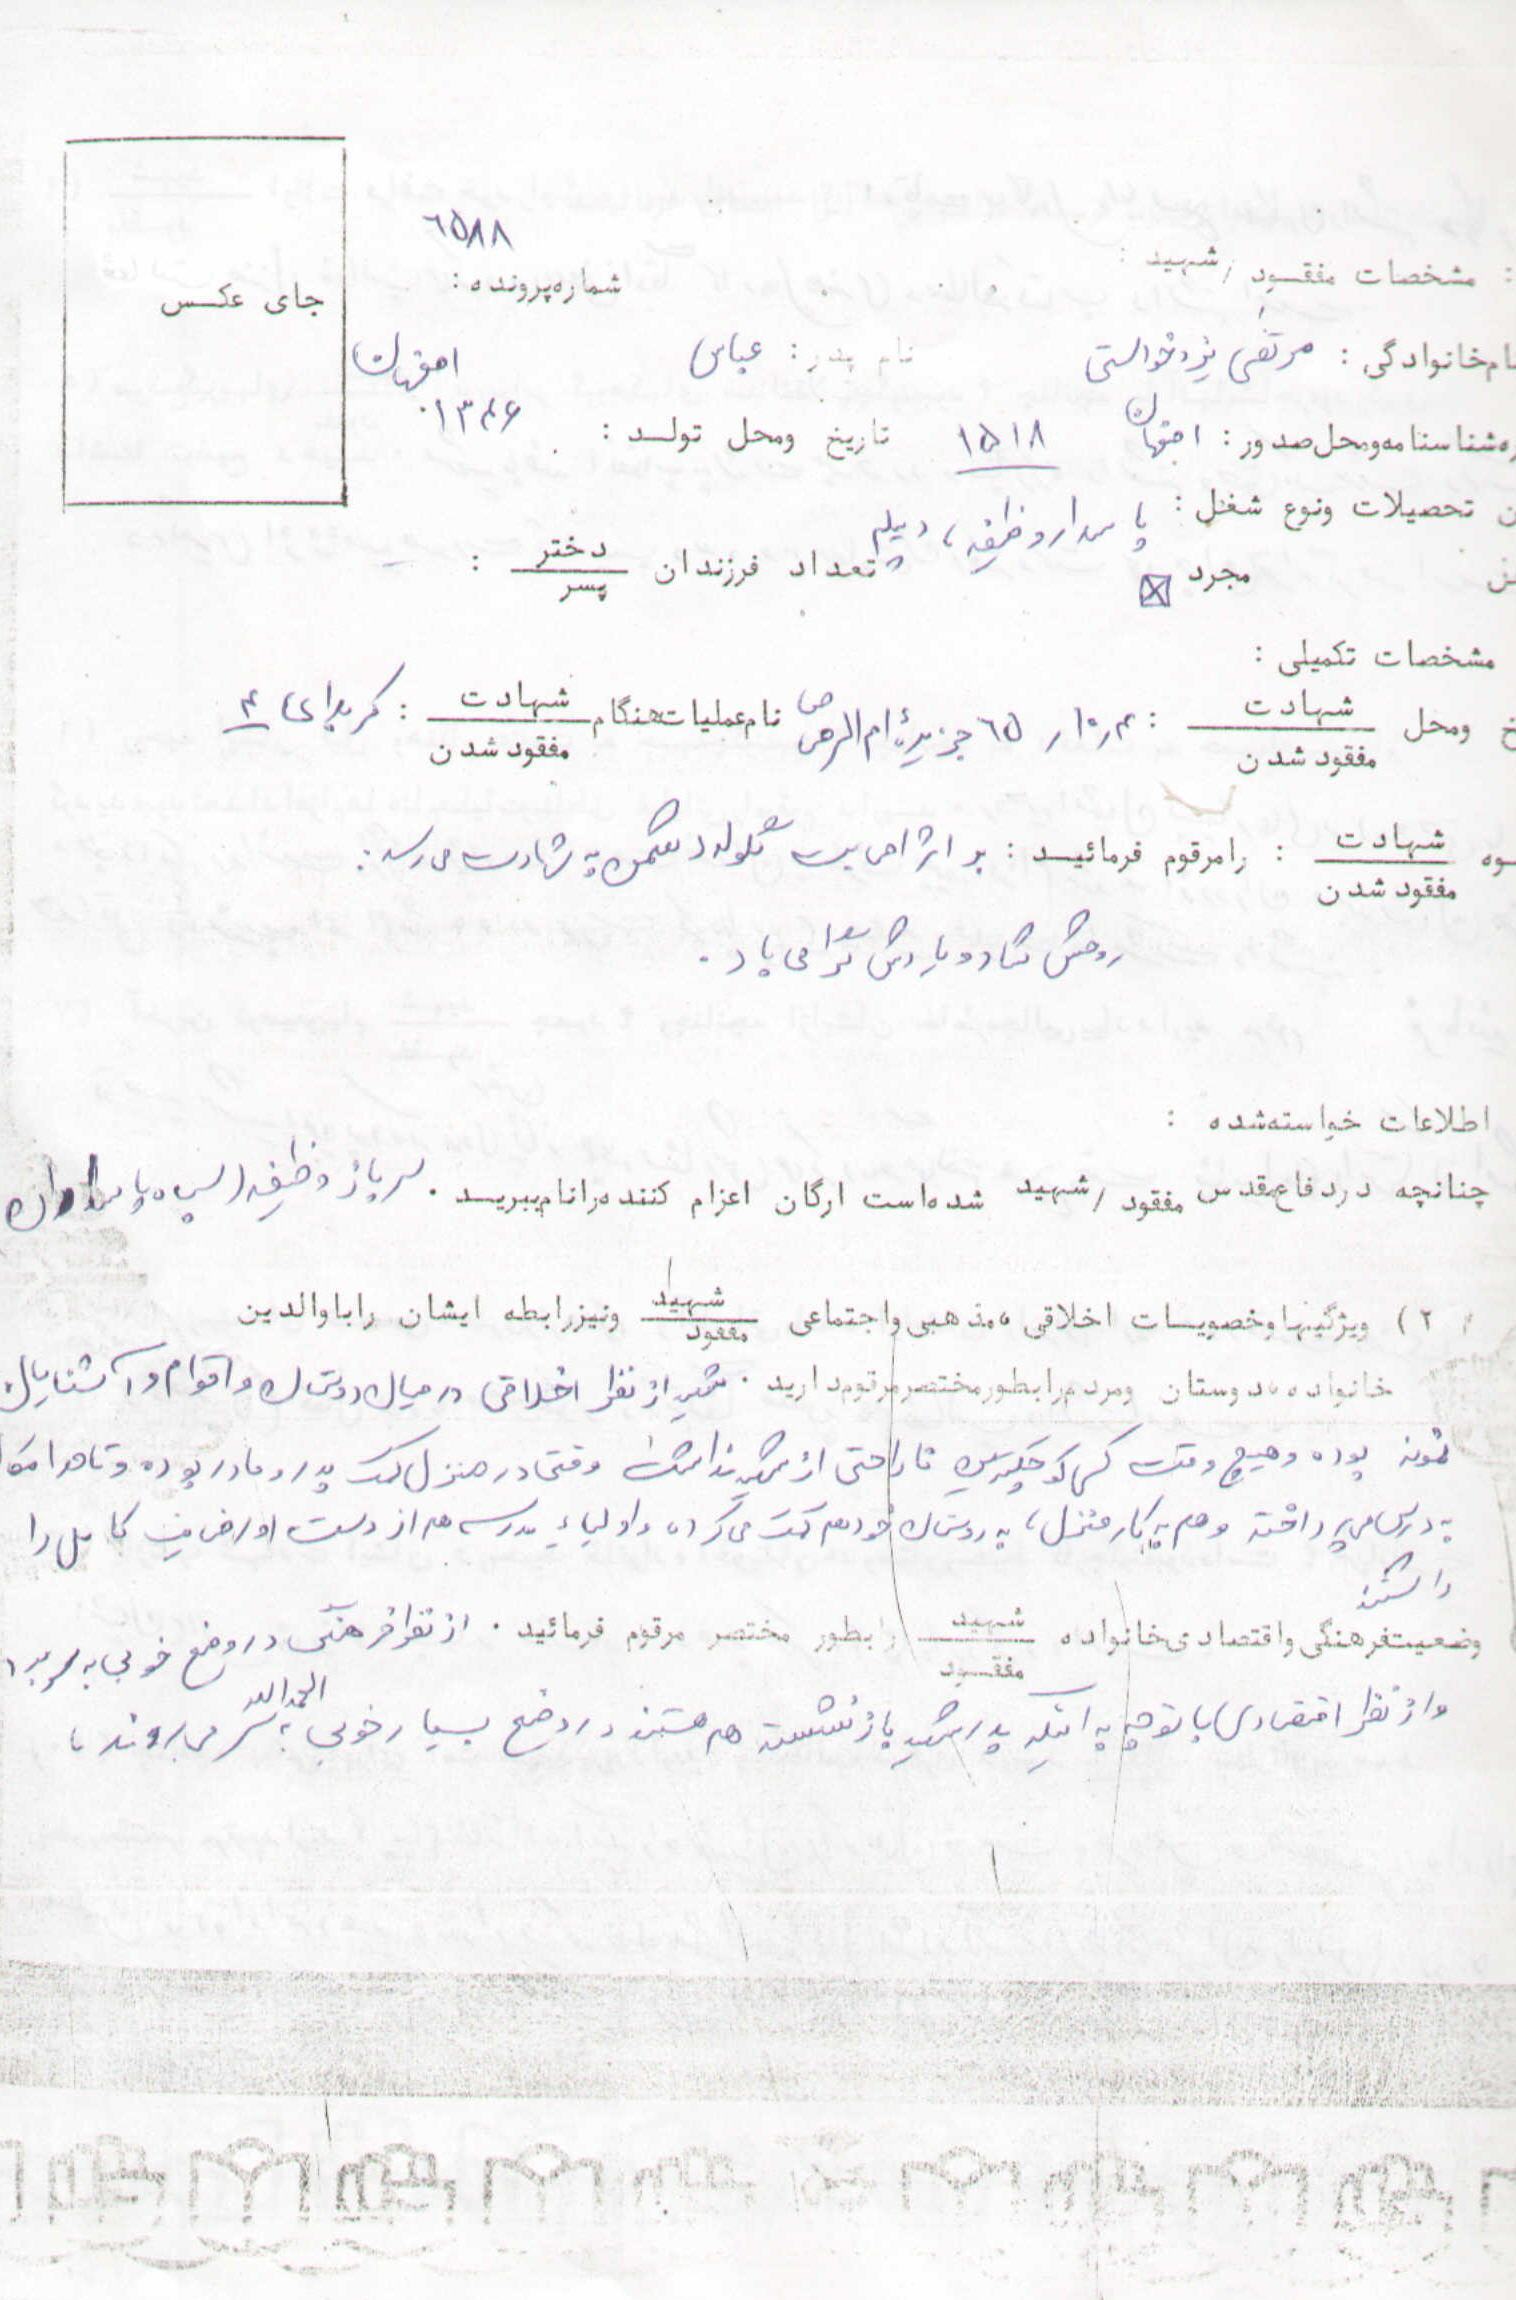 ۶۵۸۸
: مشخصات مفقود / شهید :
شماره پرونده :
جای عکس
نام خانوادگی : مرتضی یزدخواستی نام پدر : عباس
اصفهان
ره شناسنامه و محل صدور : اصفهان ۱۵۱۸ تاریخ و محل تولد : ۱۳۴۶
ن تحصیلات و نوع شغل : پاسدار وظیفه ، دیپلم
مجرد ☒ تعداد فرزندان دختر / پسر : -
مشخصات تکمیلی :
خ و محل شهادت / مفقود شدن : ۴ر۱۰ر ۶۵ جزیرهٔ ام الرصاص نام عملیات هنگام شهادت / مفقود شدن : کربلای ۴
وه شهادت / مفقود شدن : را مرقوم فرمائید : بر اثر اصابت گلوله دشمن به شهادت می رسد .
روحش شاد و یادش گرامی باد .
اطلاعات خواسته شده :
چنانچه در دفاع مقدس مفقود / شهید شده است ارگان اعزام کننده را نام ببرید . سرباز وظیفه (سپاه پاسداران
۲ ) ویژگیها و خصویسات اخلاقی ، مذهبی و اجتماعی شهید / مفقود و نیز رابطه ایشان را با والدین
خانواده ، دوستان و مردم را بطور مختصر مرقوم دارید . شهید از نظر اخلاقی در میان دوستان و اقوام و آشنایان
نمونه بوده و هیچ وقت کسی کوچکترین ناراحتی از شهید نداشت وقتی در منزل کمک پدر و مادر بوده و تا هم
به درس می پرداخته و هم به کار منزل ، به دوستان خود هم کمک می کرده و اولیاء مدرسه هم از دست او رضایت کامل را
داشتند
وضعیت فرهنگی و اقتصادی خانواده شهید / مفقود را بطور مختصر مرقوم فرمائید . از نظر فرهنگی در وضع خوبی به سر
و از نظر اقتصادی با توجه به اینکه پدر شهید بازنشسته هم هستند در وضع بسیار خوبی الحمدالله به سر می برند ،